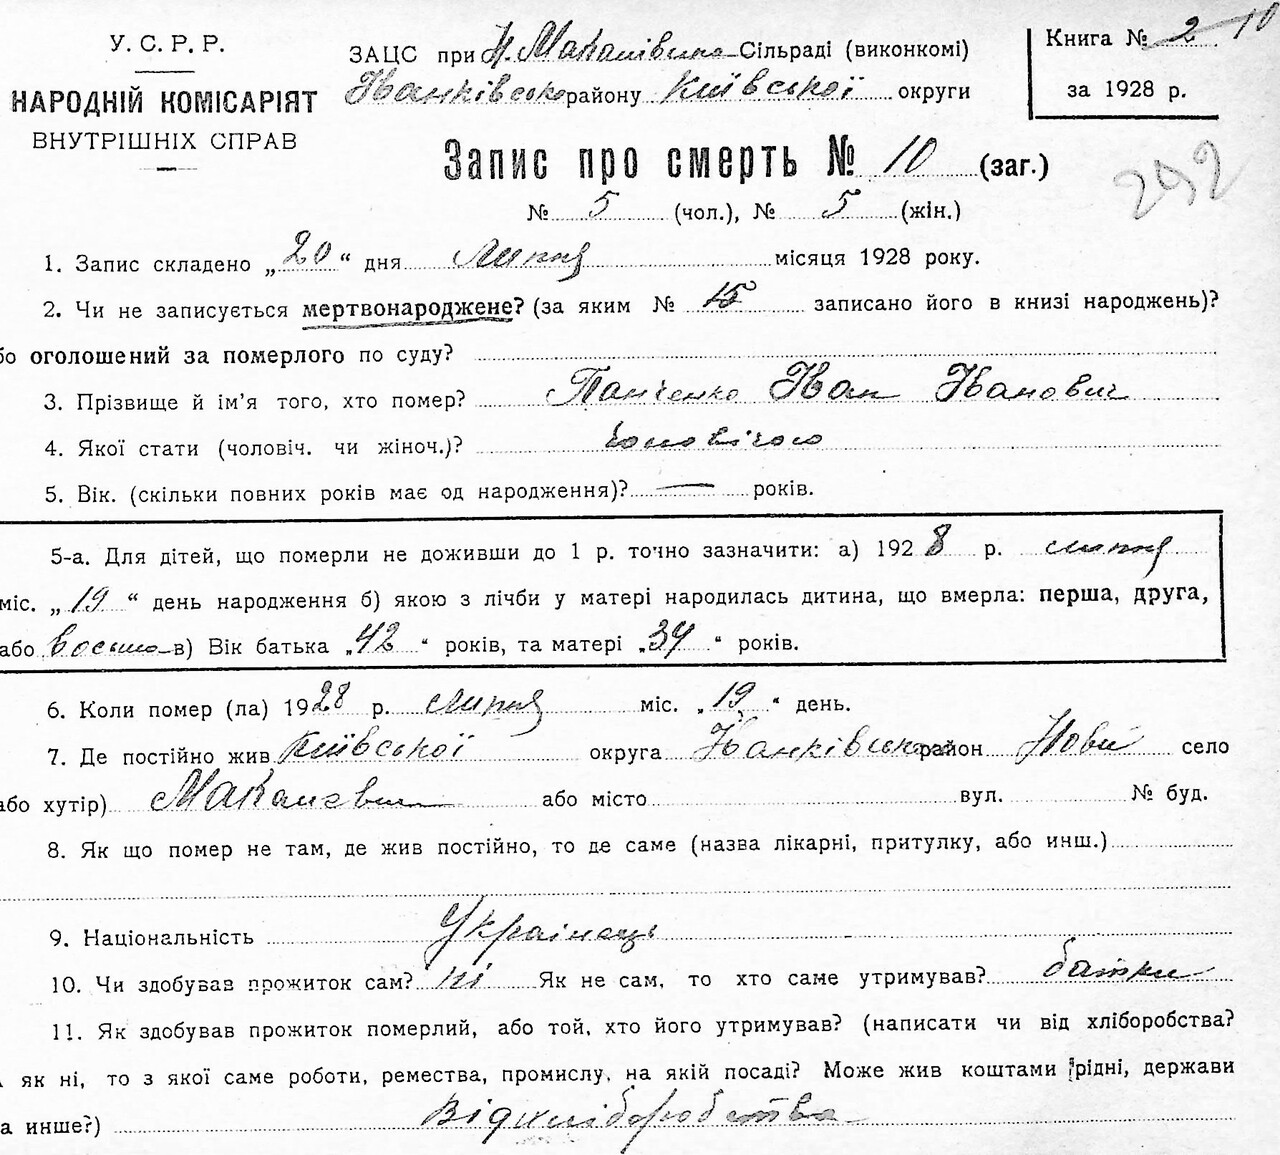 У. С. Р. Р.
НАРОДНІЙ КОМІСАРІЯТ
ВНУТРІШНІХ СПРАВ
ЗАЦС при Н. Макалівська Сільраді (виконкомі)
Іванківсько району Київської округи
Книга № 2 10
за 1928 р.
Запис про смерть № 10 (заг.)
292
№ 5 (чол.), № 5 (жін.)
1. Запис складено „20“ дня липня місяця 1928 року.
2. Чи не записується мертвонароджене? (за яким № 15 записано його в книзі народжень)?
бо оголошений за померлого по суду?
3. Прізвище й ім’я того, хто помер? Панченко Іван Іванович
4. Якої стати (чоловіч. чи жіноч.)? чоловічого
5. Вік. (скільки повних років має од народження)? — років.
5-а. Для дітей, що померли не доживши до 1 р. точно зазначити: а) 1928 р. липня
міс. „19“ день народження б) якою з лічби у матері народилась дитина, що вмерла: перша, друга,
або восьма в) Вік батька „42“ років, та матері „34“ років.
6. Коли помер (ла) 1928 р. липня міс. „19“ день.
7. Де постійно жив Київської округа Іванківського район Нові село
або хутір) Макалевичі або місто вул. № буд.
8. Як що помер не там, де жив постійно, то де саме (назва лікарні, притулку, або инш.)
9. Національність Українець
10. Чи здобував прожиток сам? ні Як не сам, то хто саме утримував? батьки
11. Як здобував прожиток померлий, або той, хто його утримував? (написати чи від хліборобства?
як ні, то з якої саме роботи, ремества, промислу, на якій посаді? Може жив коштами рідні, держави
а инше?) Від хліборобства